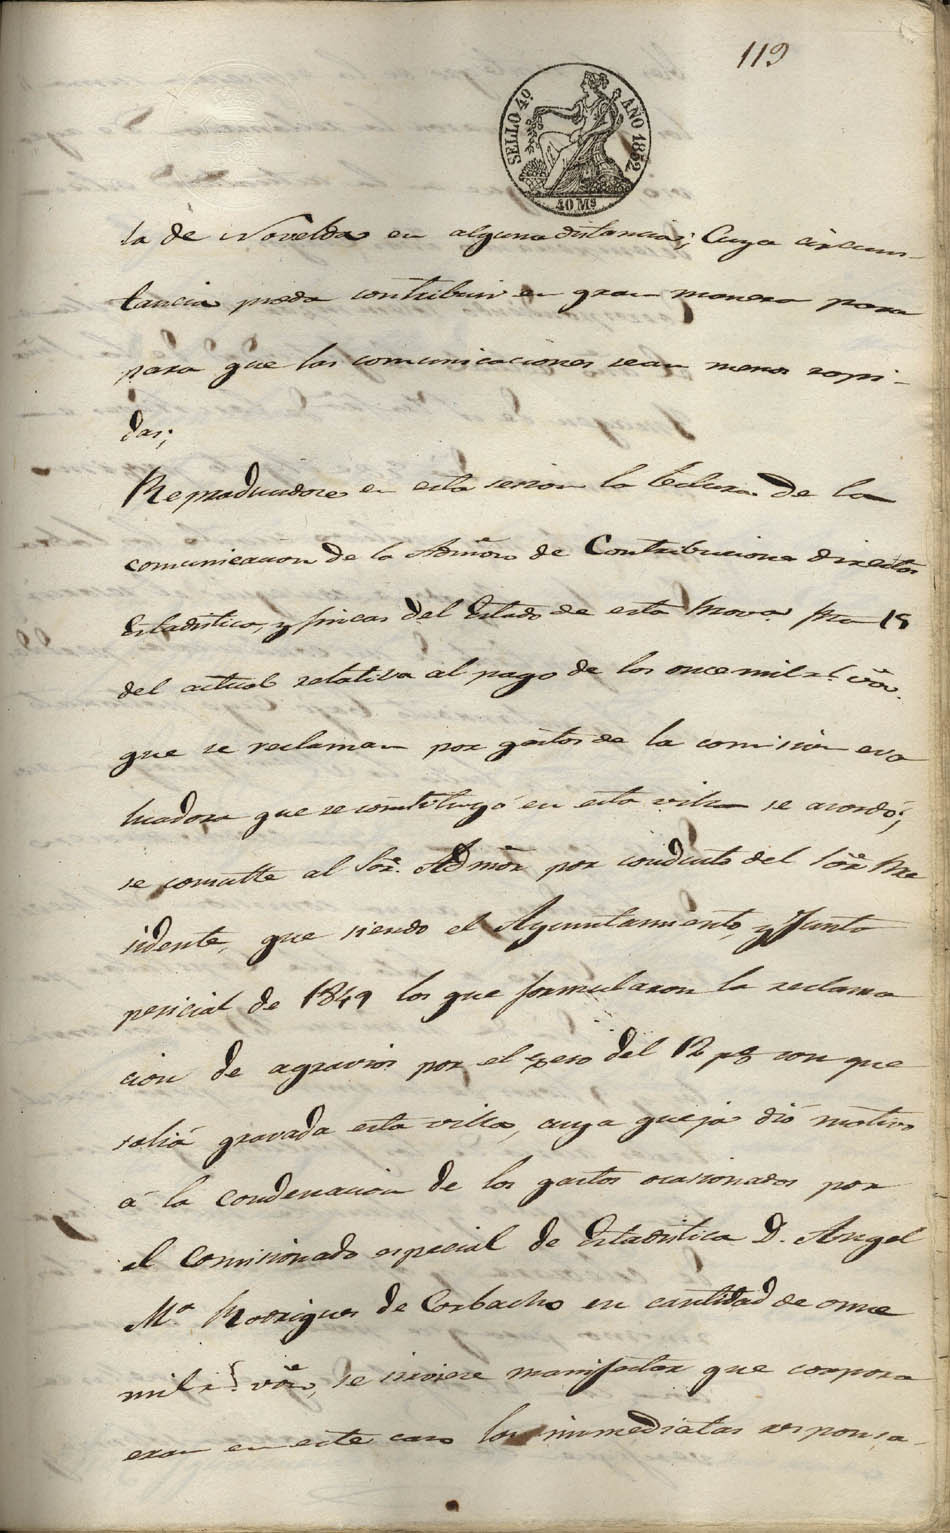 119
SELLO 4º AÑO 1852
40 Ms
la de Novelda en alguna distancia; Cuya circuns-
tancia pueda contribuir en gran manera para
para que las comunicaciones sean menos rapi-
das;
Reproducidose en esta sesion la lectura de la
comunicacion de la Admon de Contribuciones directas
Estadistica, y fincas del Estado de esta Prova. fha 18
del actual relativa al pago de los once mil rs. von.
que se reclaman por gastos de la comision eva
luadora que se constituyó en esta villa se acordó;
se consulte al Sor. Admor por conducto del Sor Pre
sidente, que siendo el Ayuntamiento, y Junta
pericial de 1849 los que formularon la reclama
cion de agravios por el exeso del 12 p% con que
salia gravada esta villa, cuya queja dió motivo
á la condenacion de los gastos ocasionados por
el Comisionado especial de Estadistica D. Angel
Ma. Rodrigues de Corbacho en cantidad de once
mil rs. von, se sirviese manifestar que corpora
eran en este caso los inmediatas responsa-